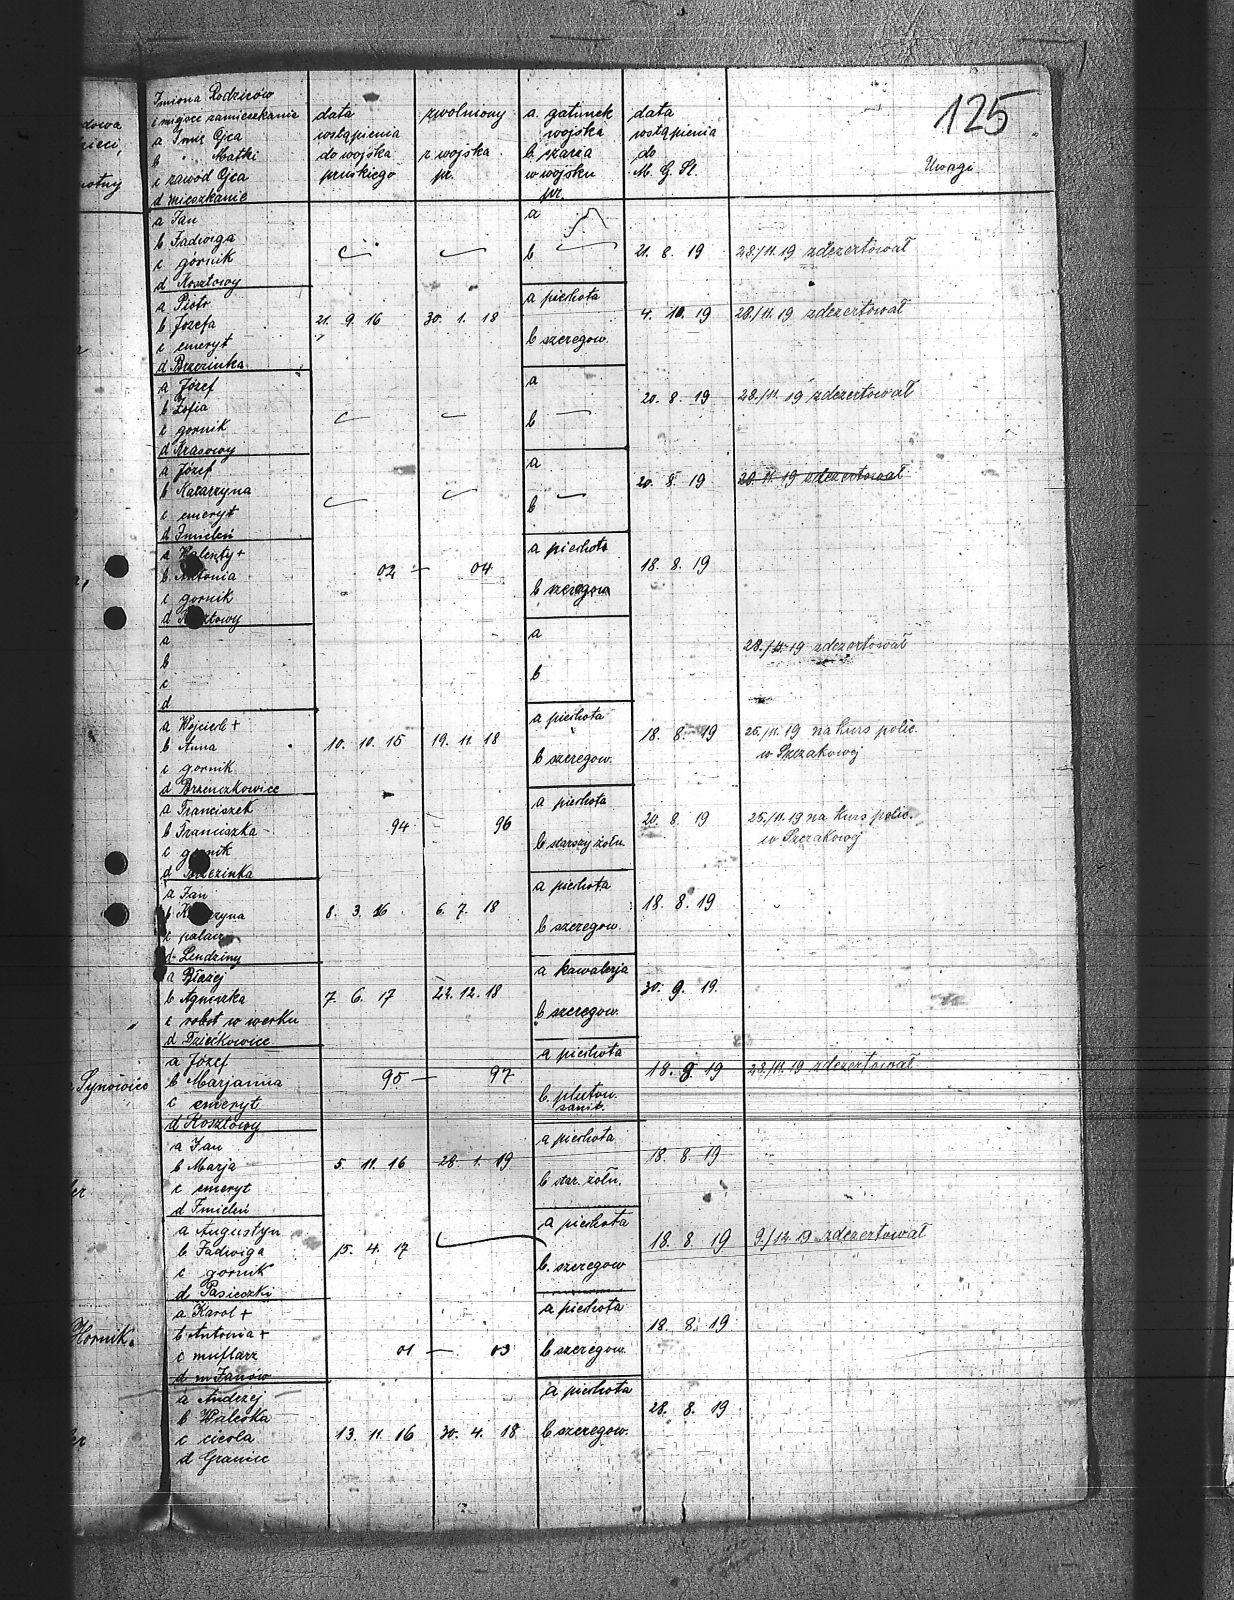 125
Imiona Rodziców
i miejsce zamieszkania
a Imię Ojca
b " Matki
c zawód Ojca
d mieszkanie
data
wstąpienia
do wojska
pruskiego
zwolniony
z wojska
pr.
a. gatunek
wojska
b. szarża
w wojsku
pr.
data
wstąpienia
do
M. G. Śl.
Uwagi
a Jan
b Jadwiga
c gornik
d Kosztowy
a
b
21. 8. 19
28./11. 19 zdezertował
a Piotr
b Józefa
c emeryt
d Brzezinka
21. 9. 16
30. 1. 18
a piechota
b szeregow.
4. 10. 19
28./11. 19 zdezertował
a Józef
b Zofia
c gornik
d Krasowy
a
b
20. 8. 19
28./11. 19 zdezertował
a Józef
b Katarzyna
c emeryt
d Imieleń
a
b
20. 8. 19
20. 11. 19 zdezertował
a Walenty +
b Antonia
c gornik
d Kosztowy
02 — 04
a piechota
b szeregow
18. 8. 19
a
b
c
d
a
b
28./11. 19 zdezertował
a Wojciech +
b Anna
c gornik
d Brzenczkowice
10. 10. 15
19. 11. 18
a piechota
b szeregow.
18. 8. 19
25./11. 19 na kurs polic.
w Szczakowej
a Franciszek
b Franciszka
c gornik
d Brzezinka
94 — 96
a piechota
b starszy żołn.
20. 8. 19
25./11. 19 na kurs polic.
w Szczakowej
a Jan
b Katarzyna
c palacz
d Lendziny
8. 3. 16
6. 7. 18
a piechota
b szeregow.
18. 8. 19
a Błażej
b Agnieszka
c robot w werku
d Dziećkowice
7. 6. 17
22. 12. 18
a kawalerja
b szeregow.
30. 9. 19.
Synowiec
a Józef
b Marjanna
c emeryt
d Kosztowy
95 — 97
a piechota
b. pluton.
sanit.
18. 8. 19
28./11. 19 zdezertował
a Jan
b Marja
c emeryt
d Imieleń
5. 11. 16
28. 1. 19
a piechota
b star. żołn.
18. 8. 19
a Augustyn
b Jadwiga
c gornik
d Pasieczki
15. 4. 17
a piechota
b. szeregow
18. 8. 19
9./12. 19 zdezertował
Hornik.
a Karol +
b Antonia +
c muflarz
d m Janów
01 — 03
a piechota
b szeregow.
18. 8. 19
a Andrzej
b Waleska
c cieśla
d Graniec
13. 11. 16
30. 4. 18
a piechota
b szeregow.
28. 8. 19